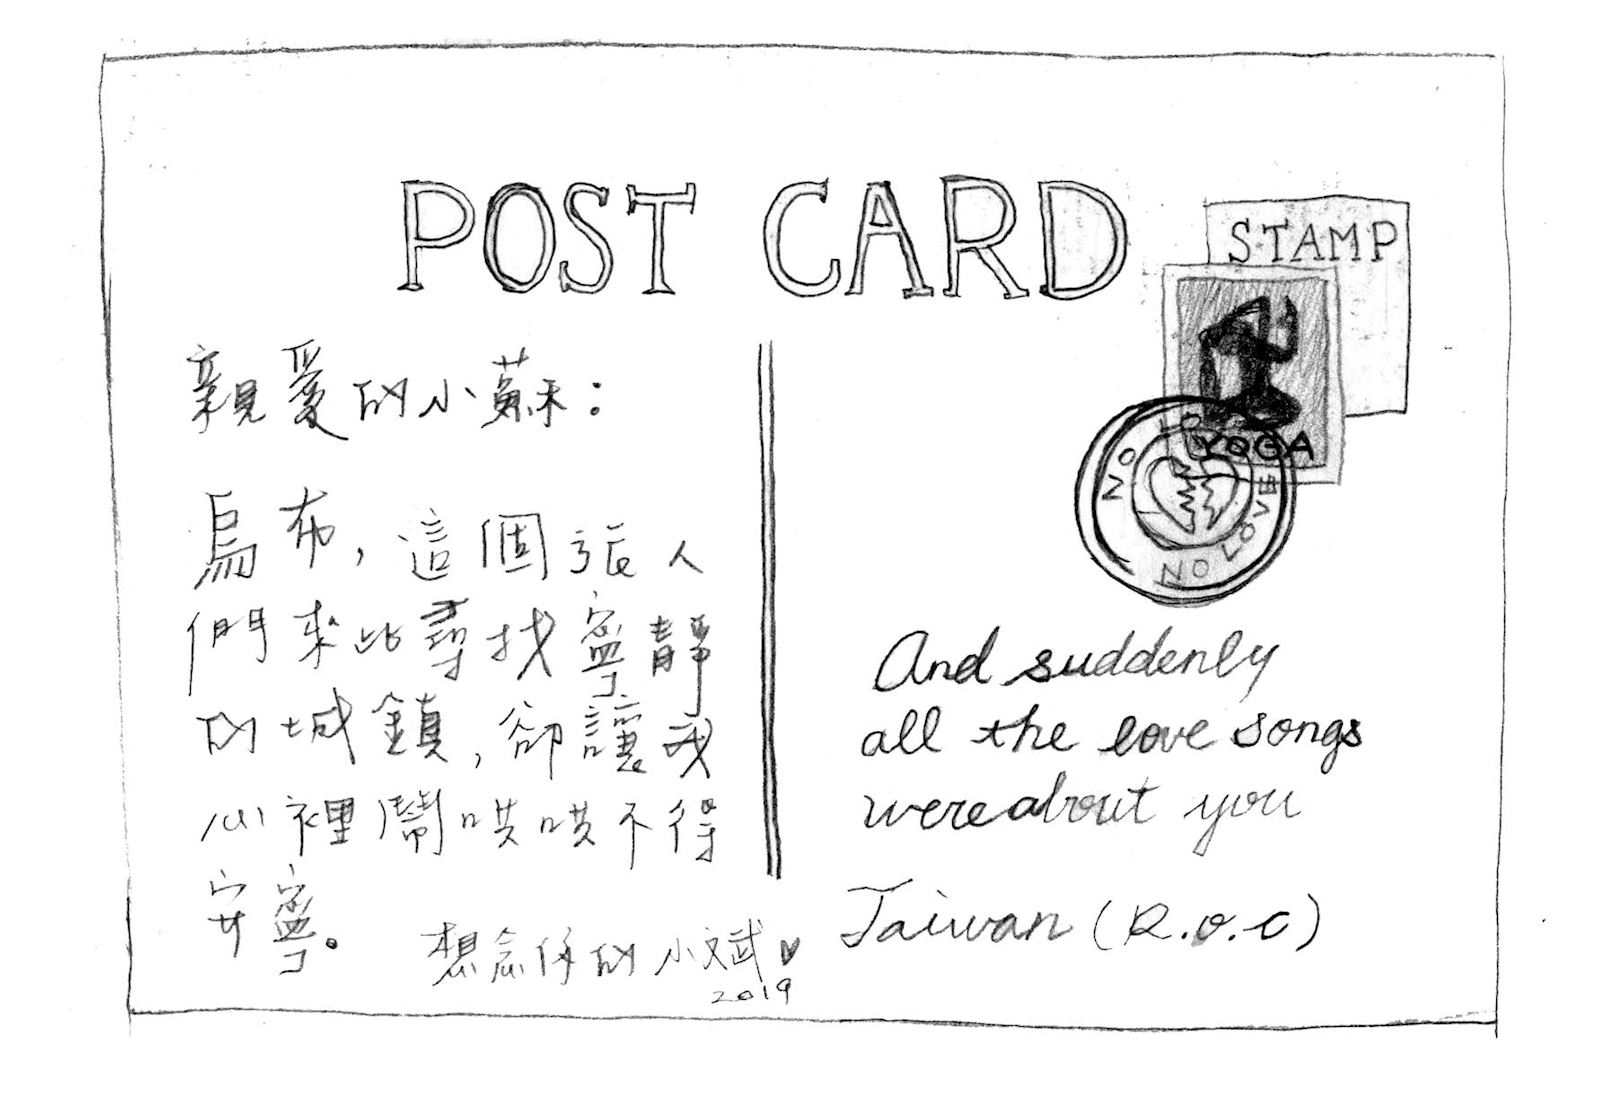 POST CARD
STAMP
YOGA
NO LOVE NO LOVE
親愛的小蘇：
烏布，這個張人
們來此尋找寧靜
的城鎮，卻讓我
心裡鬧哄哄不得
安寧。
想念你的小文武♥
2019
And suddenly
all the love songs
were about you
Taiwan (R.O.C)